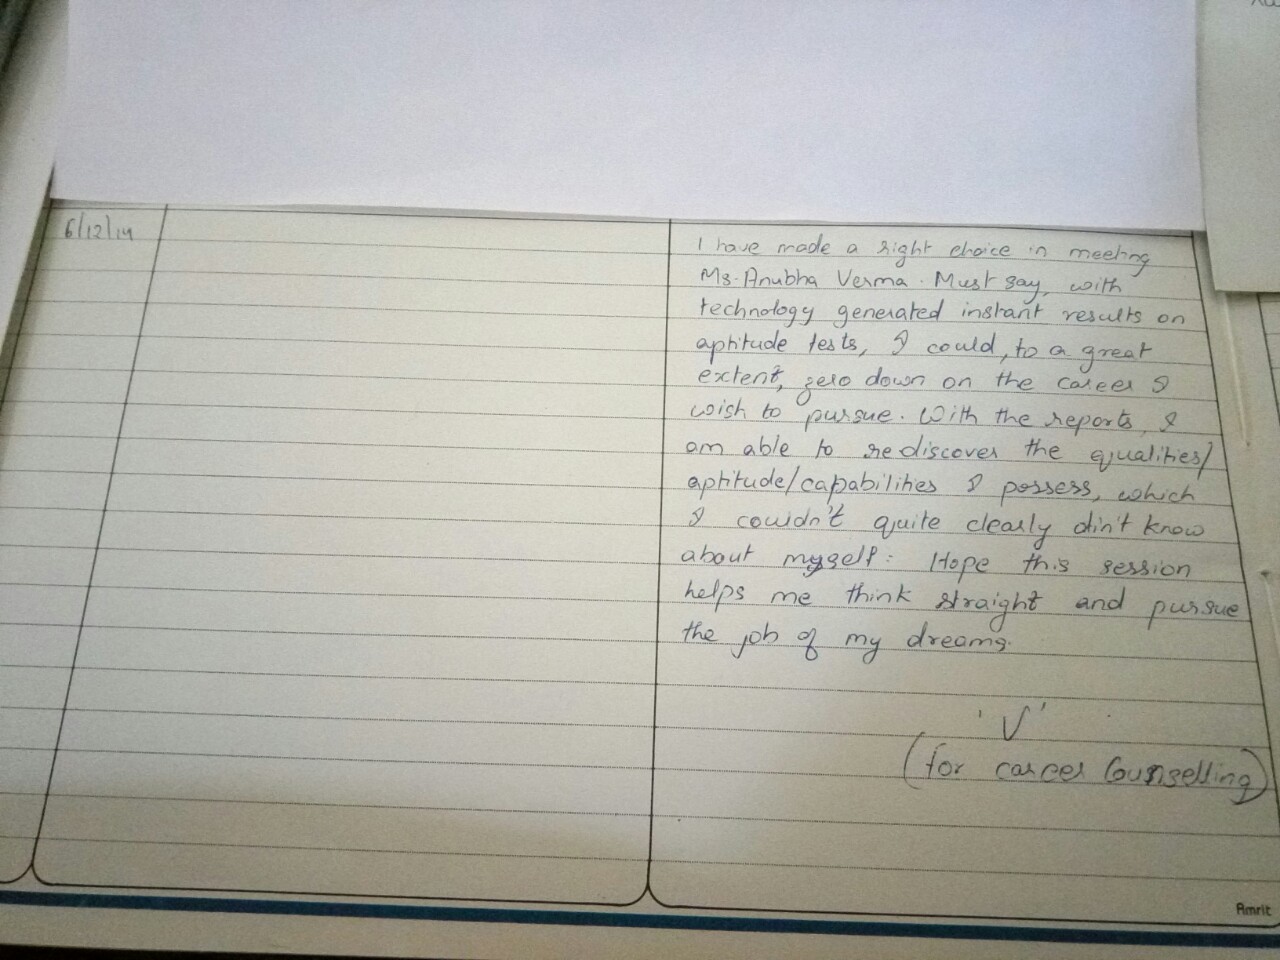 6/12/14
I have made a right choice in meeting
Ms. Anubha Verma. Must say, with
technology generated instant results on
aptitude tests, I could, to a great
extent, zero down on the career I
wish to pursue. With the reports, I
am able to rediscover the qualities/
aptitude/capabilities I possess, which
I couldn't quite clearly din't know
about myself. Hope this session
helps me think straight and pursue
the job of my dreams.
'V'
(for career Counselling)
Amrit